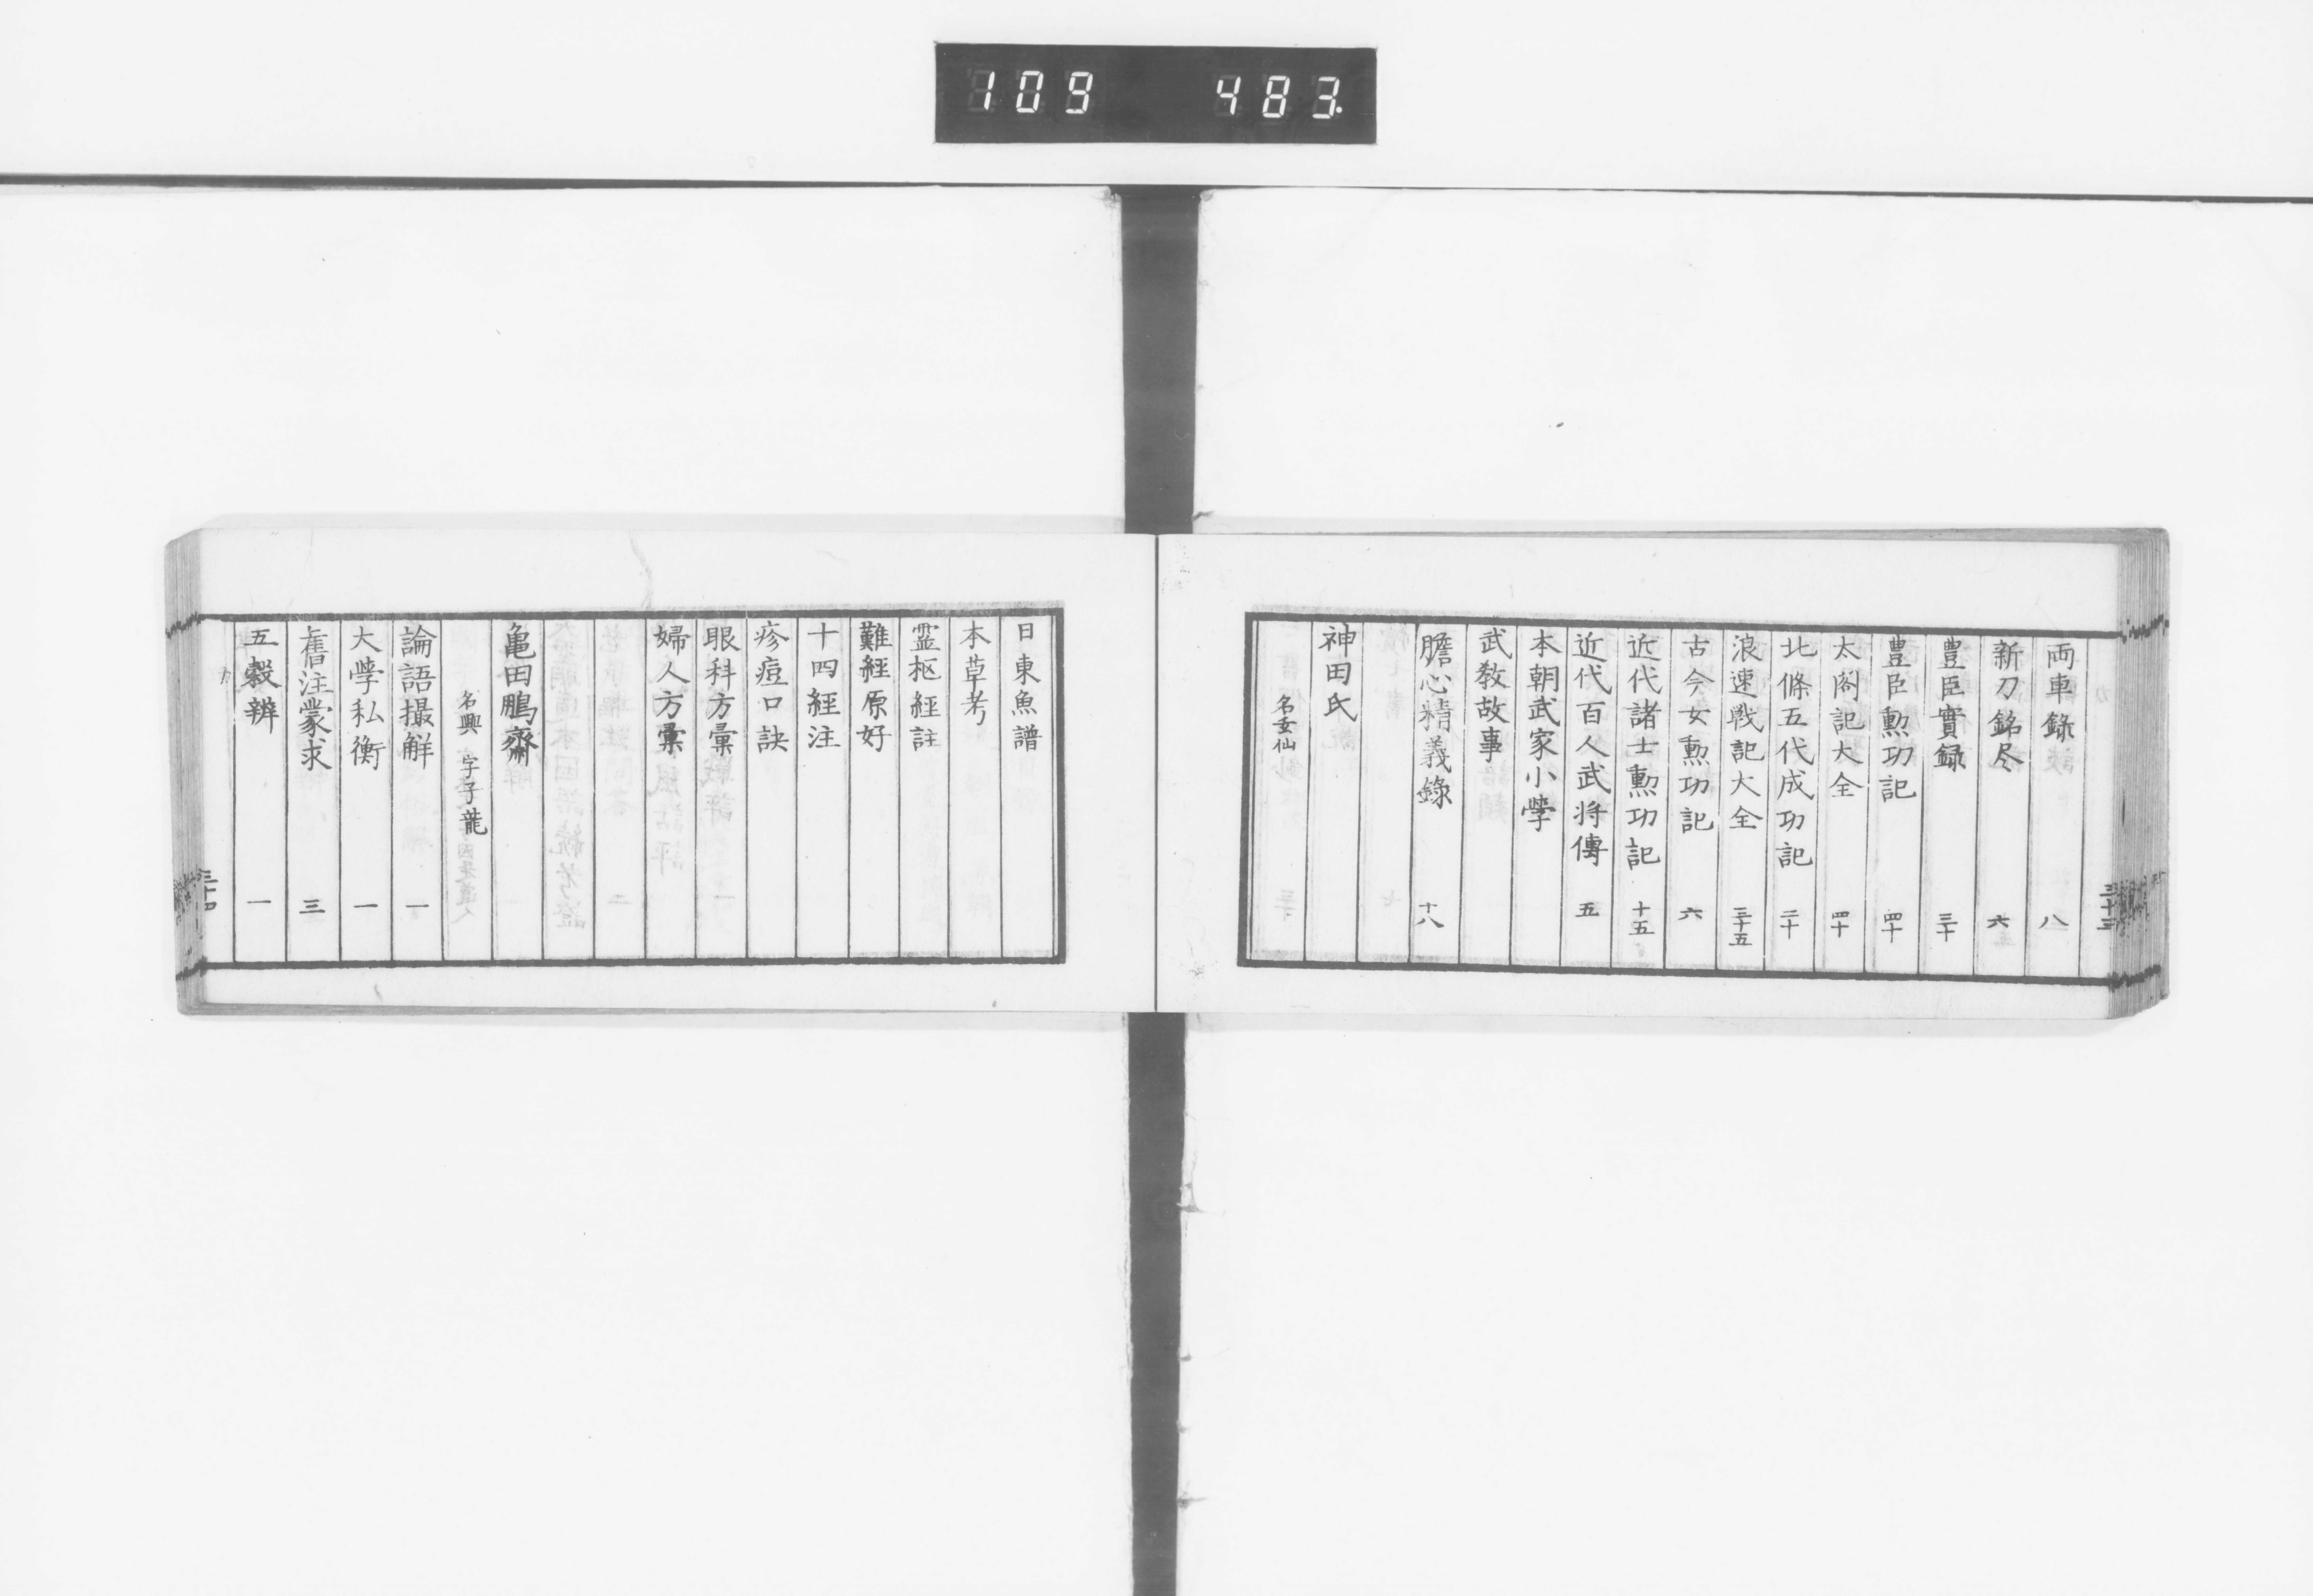 109 483
三十三
両車錄 八
新刀銘尽 六
豊臣實録 三十
豊臣勲功記 四十
太閤記大全 四十
北條五代成功記 二十
浪速戦記大全 三十五
古今女勲功記 六
近代諸士勲功記 十五
近代百人武将傳 五
本朝武家小學
武教故事
膽心精義錄 十八
神田氏
日東魚譜
本草考
霊枢經註
難經原好
十四經注
疹痘口訣
眼科方彙
婦人方彙
亀田鵬齋
名興 字子龍
論語撮解 一
大學私衡 一
舊注蒙求 三
五穀辨 一
カ 三十四